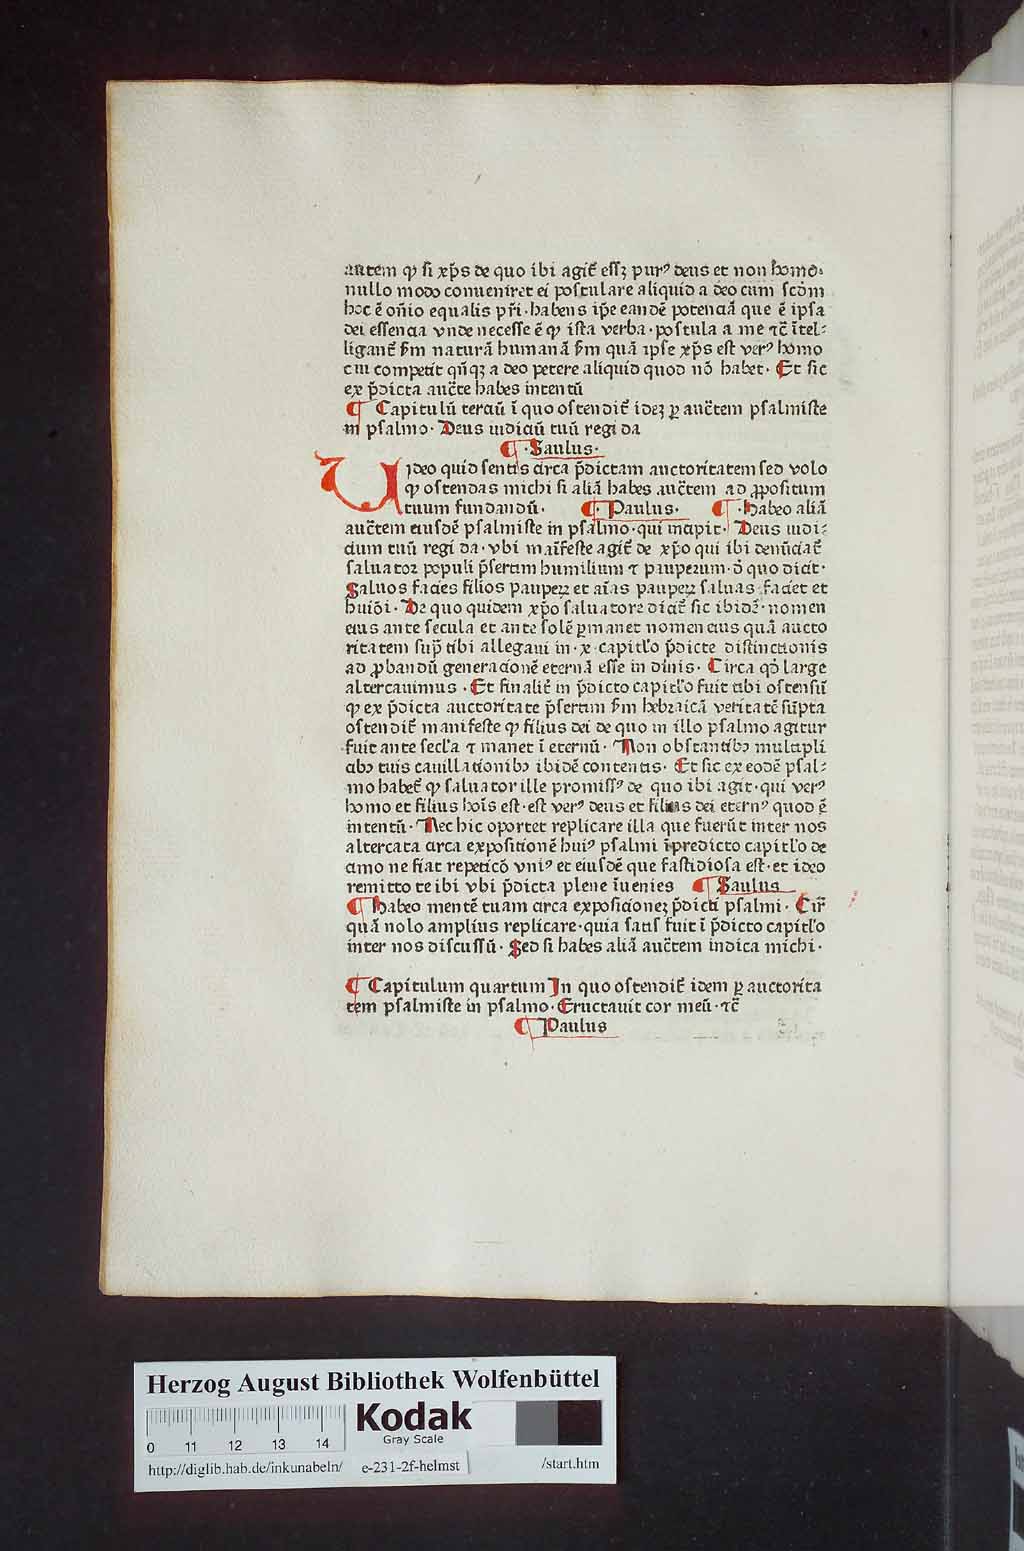 autem ꝙ si xp̄s de quo ibi agit̄ essꝫ purꝰ deus et non homo·
nullo modo conueniret ei postulare aliquid a deo cum scd̄m
hoc ē om̄io equalis pr̄i · habens ip̄e eandē potenciā que ē ipsa
dei essencia vnde necesse ē ꝙ ista verba · postula a me ⁊c̄ ītel⸗
ligant̄ ẜm naturā humanā ẜm quā ipse xp̄s est verꝰ homo
cui competit qn̄qꝫ a deo petere aliquid quod nō habet · Et sic
ex p̄dicta auc̄te habes intentū
¶ Capitulū terciū ī quo ostendit̄ ideꝫ ꝑ auc̄tem psalmiste
in psalmo · Deus iudiciū tuū regi da
¶ · Saulus ·
Uideo quid sentis circa p̄dictam auctoritatem sed volo
ꝙ ostendas michi si aliā habes auc̄tem ad ꝓpositum
tuum fundandū · ¶ · Paulus · ¶ · Habeo aliā
auc̄tem eiusdē psalmiste in psalmo · qui incipit · Deus iudi⸗
cium tuū regi da · vbi maīfeste agit̄ de xp̄o qui ibi denūciat̄
saluator populi p̄sertim humilium ⁊ pauperum · d̄ quo dicit ·
Saluos facies filios pauperꝝ et aīas pauperꝝ saluas faciet et
huiōi · De quo quidem xp̄o saluatore dicit̄ sic ibidē · nomen
eius ante secula et ante solē ꝑmanet nomen eius quā aucto
ritatem sup̄ tibi allegaui in · x · capitl̓o p̄dicte distinctionis
ad ꝓbandū generacionē eternā esse in diuīs · Circa qd̄ large
altercauimus · Et finalit̄ in p̄dicto capitl̓o fuit tibi ostensū
ꝙ ex p̄dicta auctoritate p̄sertim ẜm hebraicā veritatē sūpta
ostendit̄ manifeste ꝙ filius dei de quo in illo psalmo agitur
fuit ante secl̓a ⁊ manet ī eternū · Non obstantibꝰ multipli
cibꝰ tuis cauillationibꝰ ibidē contentis · Et sic ex eodē psal⸗
mo habet̄ ꝙ saluator ille promissꝰ de quo ibi agit̄ · qui verꝰ
homo et filius hoīs est · est verꝰ deus et filius dei eternꝰ quod ē
intentū · Nec hic oportet replicare illa que fuerūt inter nos
altercata circa expositionē huiꝰ psalmi ī predicto capitl̓o de
cimo ne fiat repeticō vniꝰ et eiusdē que fastidiosa est · et ideo
remitto te ibi vbi p̄dicta plene īuenies ¶ Saulus
¶ Habeo mentē tuam circa exposicioneꝫ p̄dicti psalmi · Cir̄
quā nolo amplius replicare · quia satis fuit ī p̄dicto capitl̓o
inter nos discussū · Sed si habes aliā auc̄tem indica michi ·
¶ Capitulum quartum In quo ostendit̄ idem ꝑ auctorita
tem psalmiste in psalmo · Eructauit cor meū · ⁊c̄
¶ Paulus
Herzog August Bibliothek Wolfenbüttel
Kodak
Gray Scale
0 11 12 13 14
http://diglib.hab.de/inkunabeln/ e-231-2f-helmst /start.htm